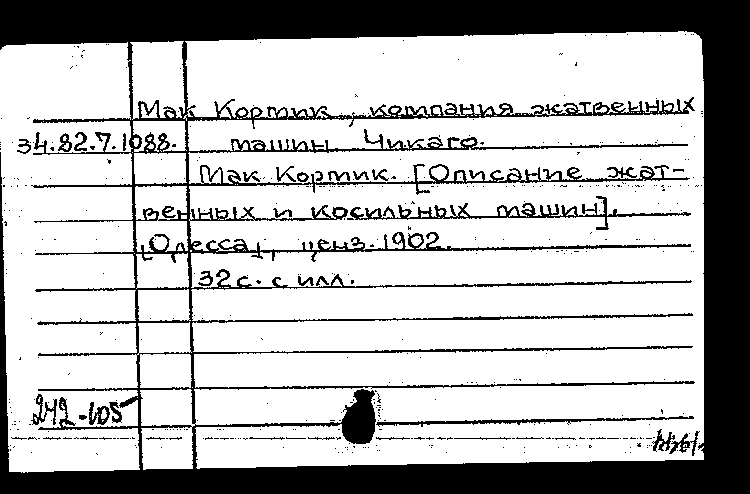 Мак Кортик, компания жатвенных
34.82.7.1088. машин. Чикаго.
Мак Кортик. [Описание жат-
венных и косильных машин].
[Одесса], ценз. 1902.
32 с. с илл.
242-105